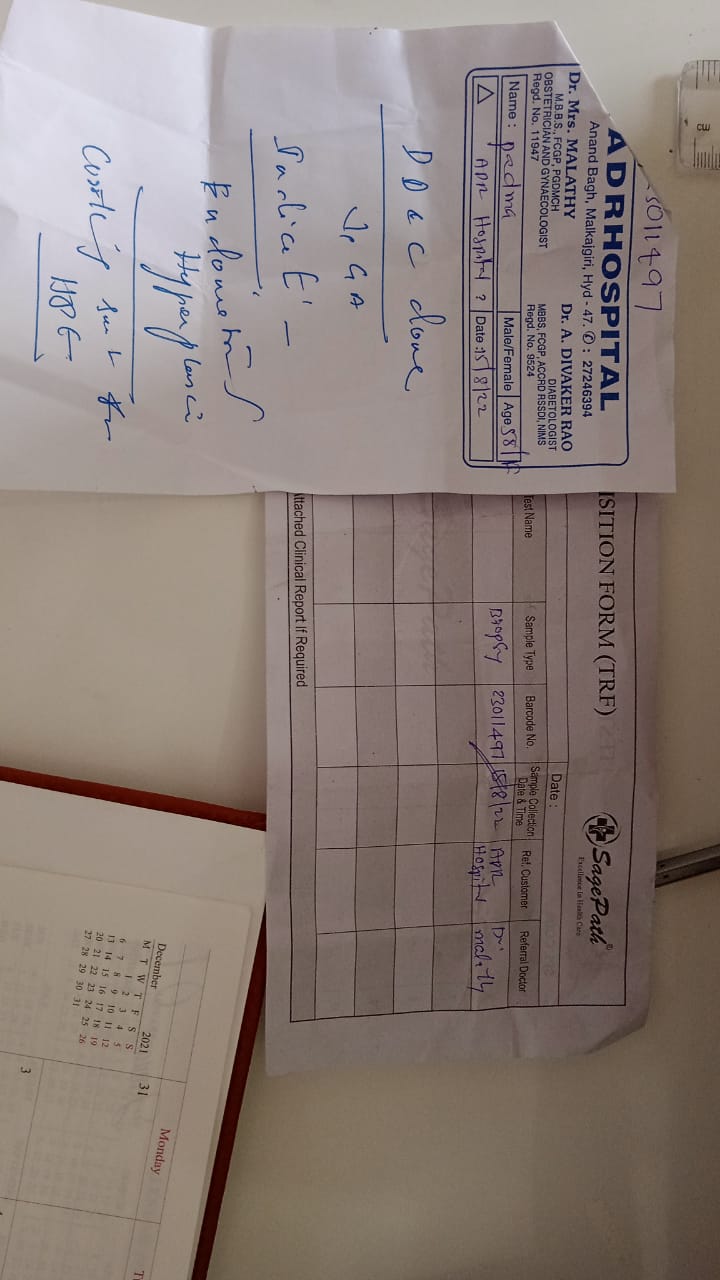 ADRHOSPITAL
Anand Bagh, Malkajgiri, Hyd - 47. ✆ : 27246394
Dr. Mrs. MALATHY
M.B.B.S., FCGP, PGDMCH
OBSTETRICIAN AND GYNAECOLOGIST
Regd. No. 11947
Dr. A. DIVAKER RAO
DIABETOLOGIST
MBBS, FCGP, ACCRD RSSDI, NIMS
Regd. No. 9524
Name : Padma Male/Female Age 58/F
ADR Hospital ? Date : 15/8/22
D & C done
Indicat' -
Endometrial
Hyperplasia
sent for
HPE
ISITION FORM (TRF)
SagePath®
Excellence In Health Care
Date :
Test Name Sample Type Barcode No. Sample Collection Date & Time Ref. Customer Referral Doctor
Biopsy 23011497 15/8/22 ADR Hospital Dr. Malathy
Attached Clinical Report If Required
December 2021
M T W T F S S
1 2 3 4 5
6 7 8 9 10 11 12
13 14 15 16 17 18 19
20 21 22 23 24 25 26
27 28 29 30 31
31 Monday
3